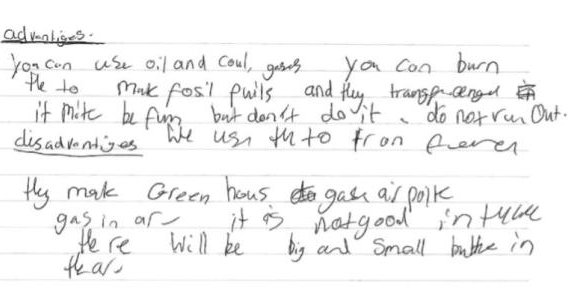 advantiges.
you can use oil and coul, gases you can burn
the to mak fosil fuils and they
it mite be fun but don't do it. do not run Out.
disadvantiges We use th to
they mak Green hous gase air
gas in ar it is not good in
there Will be big and Small in
the ar